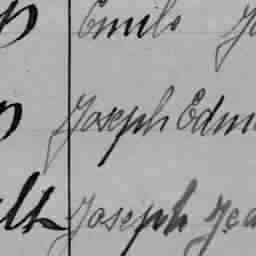 Emile
Joseph Edm
Joseph Jea